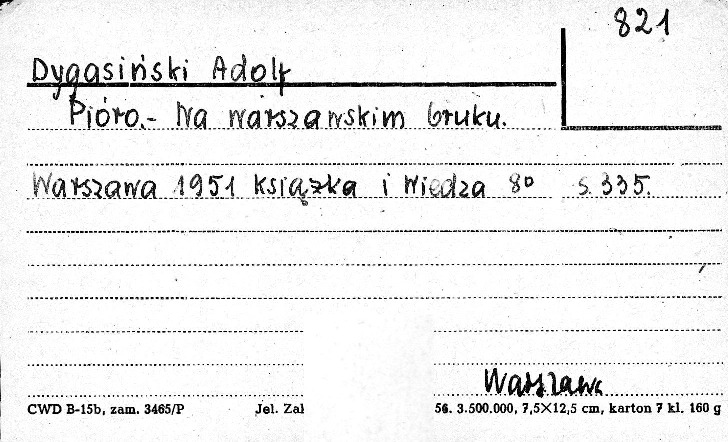 821
Dygasiński Adolf
Pióro.- Na warszawskim bruku.
Warszawa 1951 Książka i Wiedza 8º s. 335.
Warszawa
CWD B-15b, zam. 3465/P Jel. Zak 56. 3.500.000, 7,5×12,5 cm, karton 7 kl. 160 g